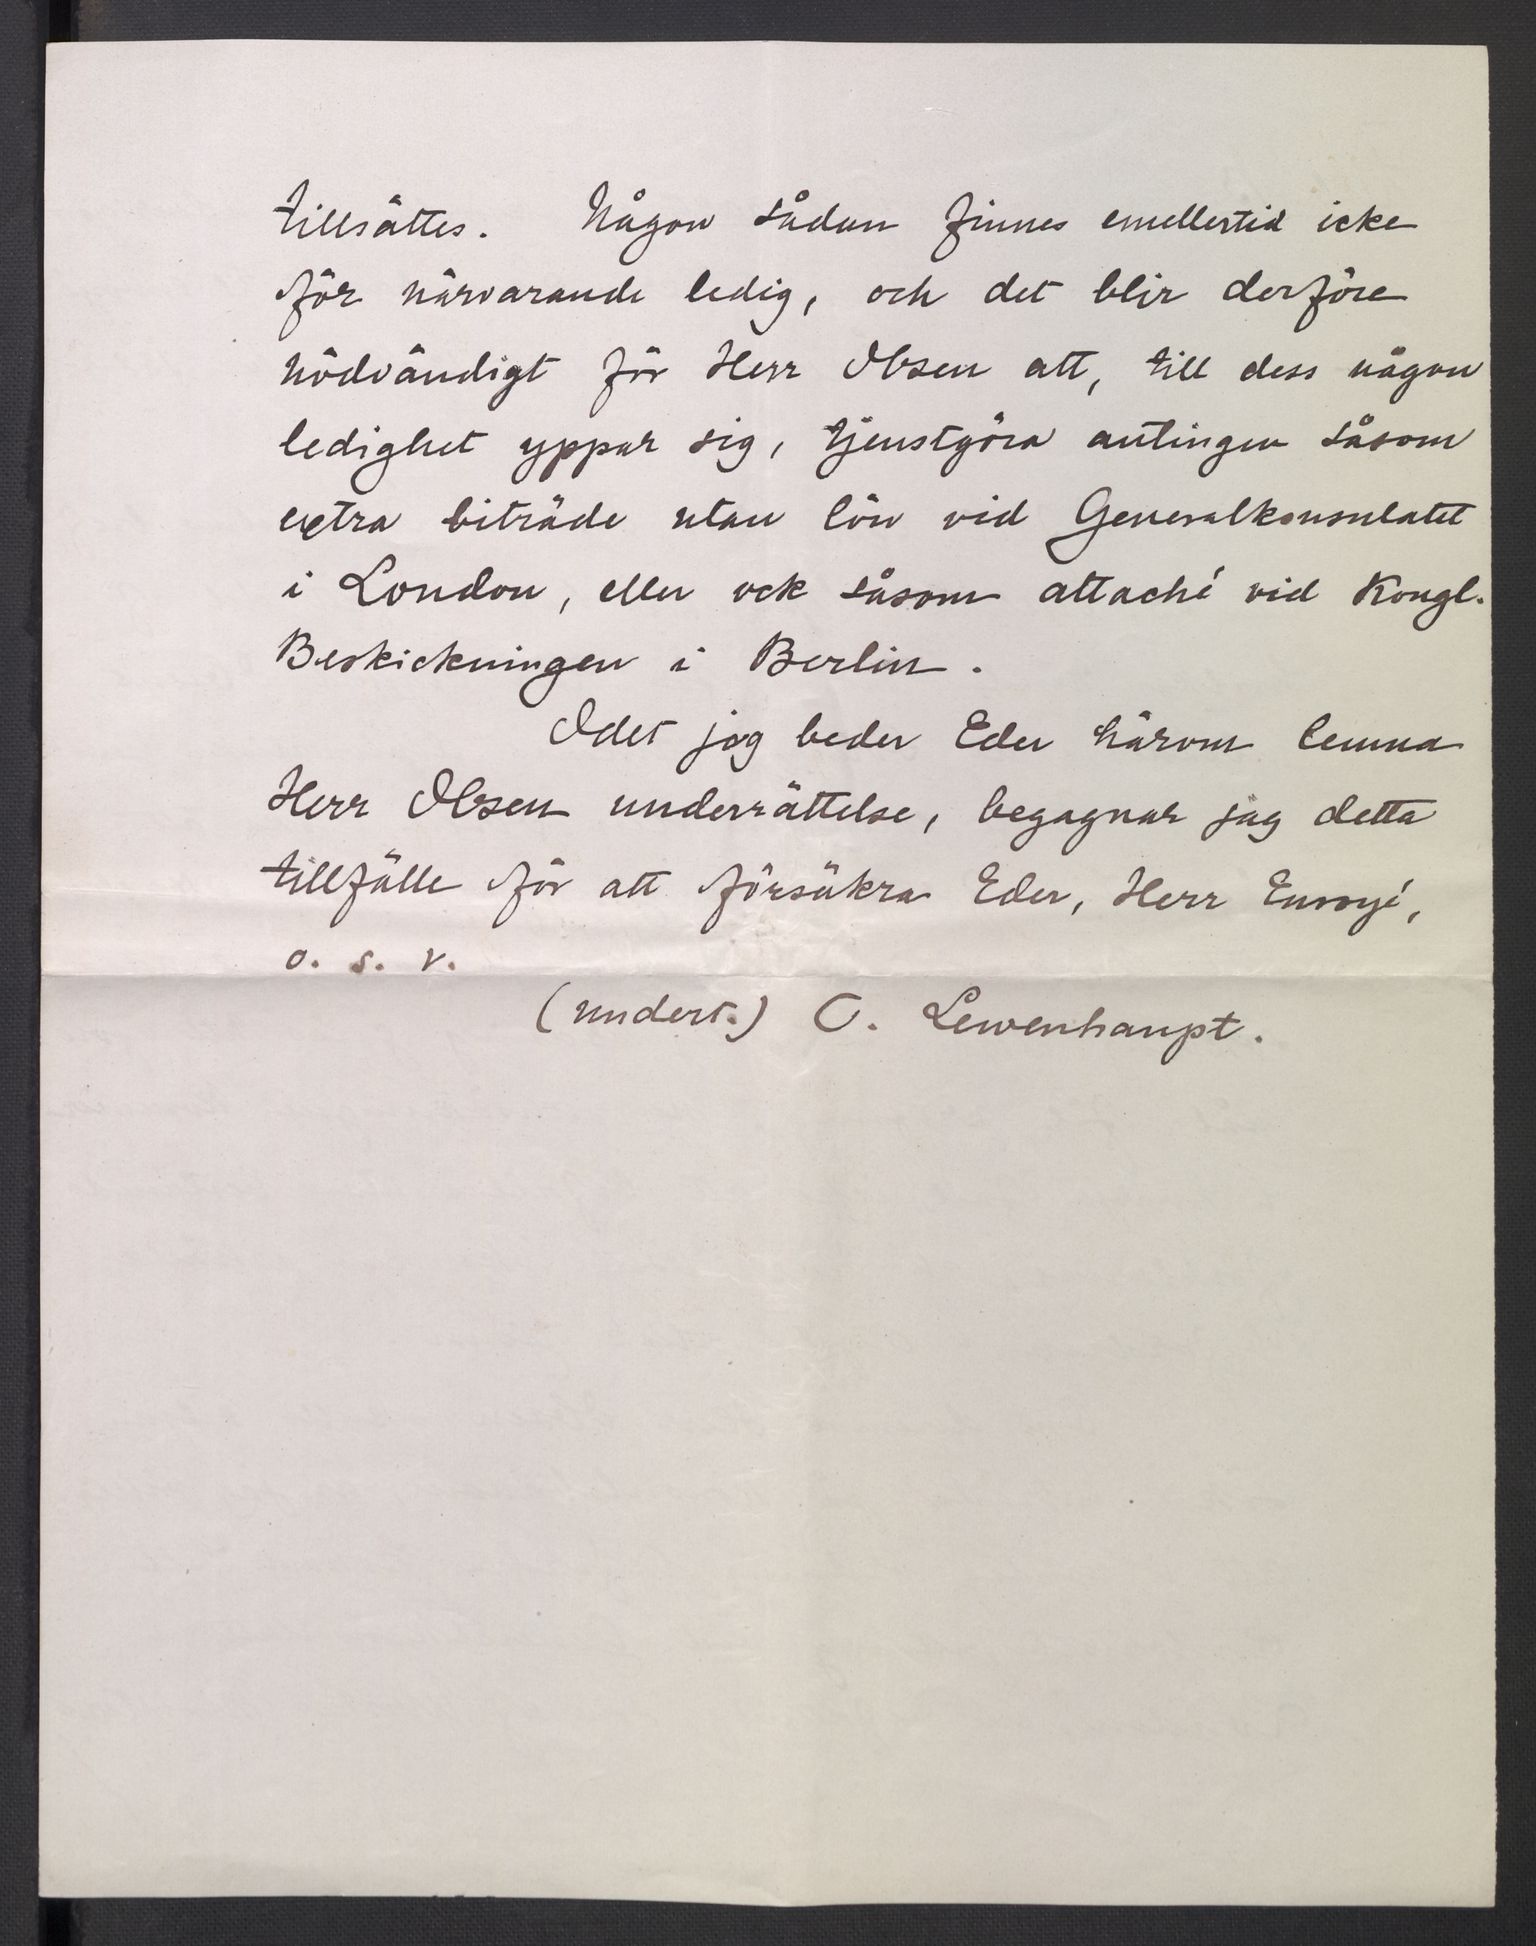 tillsättes. Någon sådan finnes emellertid icke
för närvarande ledig, och det blir derföre
nödvändigt för Herr Ibsen att, till dess någon
ledighet yppar sig, tjenstgöra antingen såsom
extra biträde utan lön vid Generalkonsulatet
i London, eller ock såsom attaché vid Kongl.
Beskickningen i Berlin.
Idet jag beder Eder härom lemna
Herr Ibsen underrättelse, begagnar jag detta
tillfälle för att försäkra Eder, Herr Envoyé,
o. s. v.
(undert.) C. Lewenhaupt.